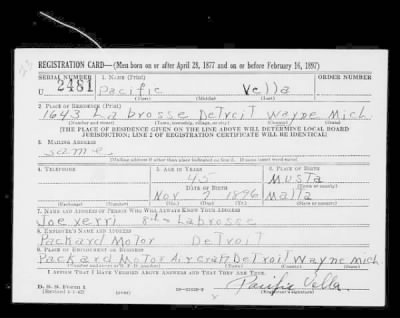 REGISTRATION CARD—(Men born on or after April 28, 1877 and on or before February 16, 1897)
SERIAL NUMBER 1. NAME (Print) ORDER NUMBER
U 2481 Pacific Vella
(First) (Middle) (Last)
2. PLACE OF RESIDENCE (Print)
1643 Labrosse Detroit Wayne Mich.
(Number and street) (Town, township, village, or city) (County) (State)
[THE PLACE OF RESIDENCE GIVEN ON THE LINE ABOVE WILL DETERMINE LOCAL BOARD
JURISDICTION; LINE 2 OF REGISTRATION CERTIFICATE WILL BE IDENTICAL]
3. MAILING ADDRESS
same
[Mailing address if other than place indicated on line 2. If same insert word same]
4. TELEPHONE 5. AGE IN YEARS 6. PLACE OF BIRTH
45 Musta
DATE OF BIRTH (Town or county)
Nov 7 1896 Malta
(Mo.) (Day) (Yr.) (State or country)
7. NAME AND ADDRESS OF PERSON WHO WILL ALWAYS KNOW YOUR ADDRESS
Joe Xerri 8th Labrosse
8. EMPLOYER'S NAME AND ADDRESS
Packard Motor Detroit
9. PLACE OF EMPLOYMENT OR BUSINESS
Packard Motor Aircraft Detroit Wayne Mich.
(Number and street or R. F. D. number) (Town) (County) (State)
I AFFIRM THAT I HAVE VERIFIED ABOVE ANSWERS AND THAT THEY ARE TRUE.
D. S. S. Form 1
Pacific Vella